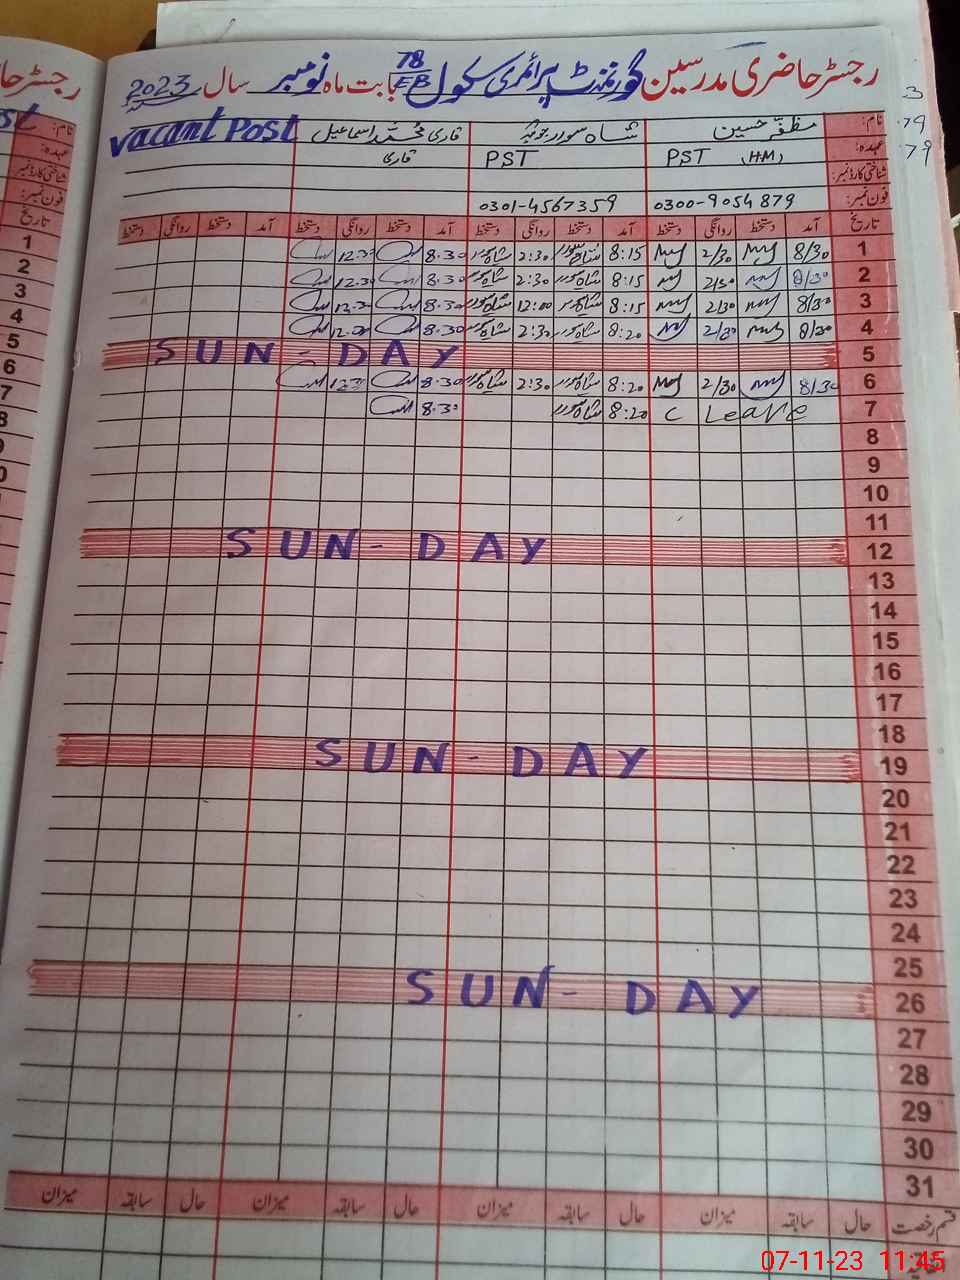 رجسٹر حاضری مدرسین گورنمنٹ پرائمری سکول 78/EB بابت ماہ نومبر سال 2023
نام: مظفر حسین شاہ سوار جوئیہ قاری محمد اسماعیل Vacant Post
عہدہ: PST (HM) PST قاری
شناختی کارڈ نمبر:
فون نمبر: 0300-9054879 0301-4567359
تاریخ آمد دستخط روانگی دستخط آمد دستخط روانگی دستخط آمد دستخط روانگی دستخط آمد دستخط روانگی دستخط
1 8/30 2/30 8:15 شاہ سوار 2:30 شاہ سوار 8.30 12.30
2 8/30 2/30 8:15 شاہ سوار 2:30 شاہ سوار 8.30 12.30
3 8/30 2/30 8:15 شاہ سوار 12:00 شاہ سوار 8.30 12.30
4 8/30 2/30 8:20 شاہ سوار 2:30 شاہ سوار 8.30
5 SUN-DAY
6 8/30 2/30 8:20 شاہ سوار 2:30 شاہ سوار 8.30
7 C Leave 8:20 شاہ سوار 8.30
8
9
10
11
12 SUN-DAY
13
14
15
16
17
18
19 SUN-DAY
20
21
22
23
24
25
26 SUN-DAY
27
28
29
30
31
قسم رخصت حال سابقہ میزان حال سابقہ میزان حال سابقہ میزان حال سابقہ میزان
07-11-23 11:45